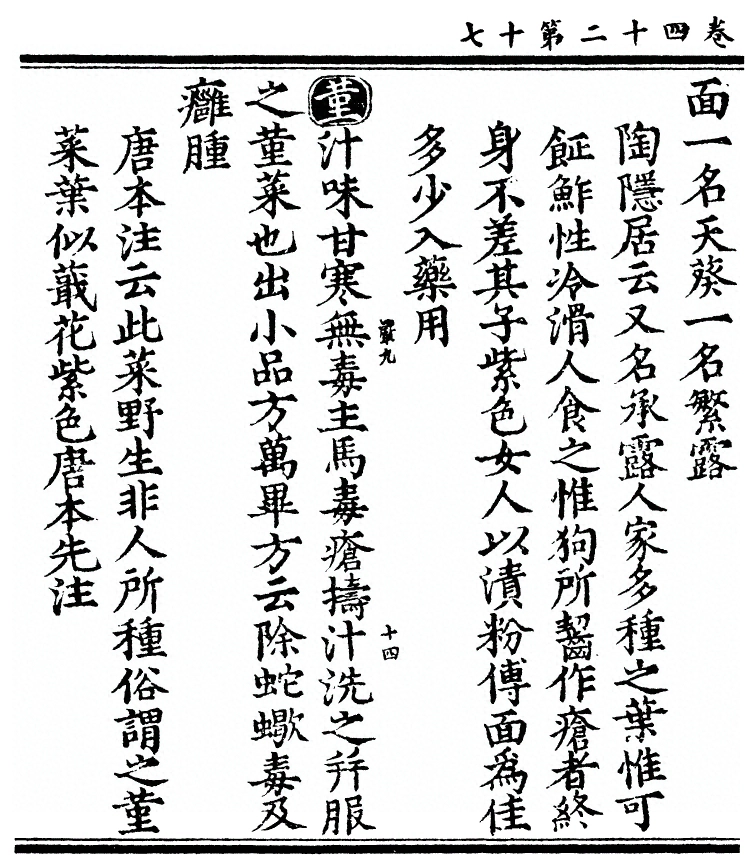 七十第二十四卷
面一名天葵一名繁露
陶隱居云又名承露人家多種之葉惟可
䱒鮓性冷滑人食之惟狗所齧作瘡者終
身不差其子紫色女人以漬粉傅面為佳
多少入藥用
菫汁味甘寒無毒主馬毒瘡擣汁洗之并服
之菫菜也出小品方萬畢方云除蛇蠍毒及
癰腫
唐本注云此菜野生非人所種俗謂之菫
菜葉似蕺花紫色唐本先注
十四